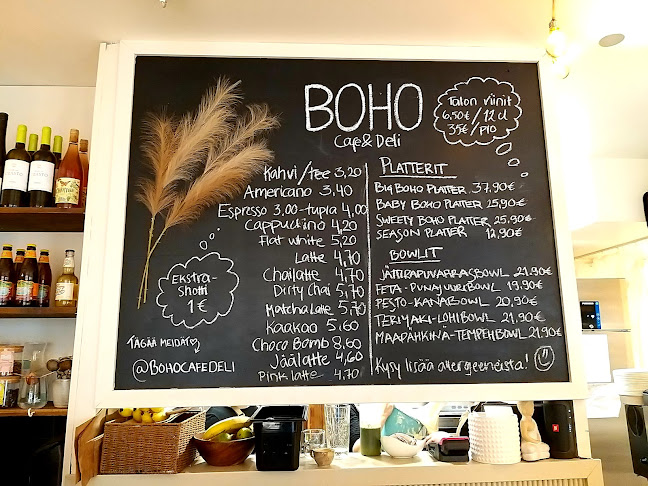 BOHO
Cafe & Deli
Talon viinit
6,50€ / 12 cl
35€ / plo
Kahvi/tee 3,20
Americano 3,40
Espresso 3,00-tupla 4,00
Cappuccino 4,20
Flat white 5,20
Latte 4,70
Chailatte 4,70
Dirty Chai 5,70
Matcha latte 5,70
Kaakao 5,60
Choco Bomb 8,60
Jäälatte 4,60
Pink latte 4,70
Ekstra-
shotti
1 €
TÄGÄÄ MEIDÄT
@BOHOCAFEDELI
PLATTERIT
BIG BOHO PLATTER 37,90€
BABY BOHO PLATTER 25,90€
SWEETY BOHO PLATTER 25,90€
SEASON PLATTER 12,90€
BOWLIT
JÄTTIRAPUVARRASBOWL 21,90€
FETA-PUNAJUURIBOWL 19,90€
PESTO-KANABOWL 20,90€
TERIYAKI-LOHIBOWL 21,90€
MAAPÄHKINÄ-TEMPEHBOWL 21,90€
Kysy lisää allergeeneista!